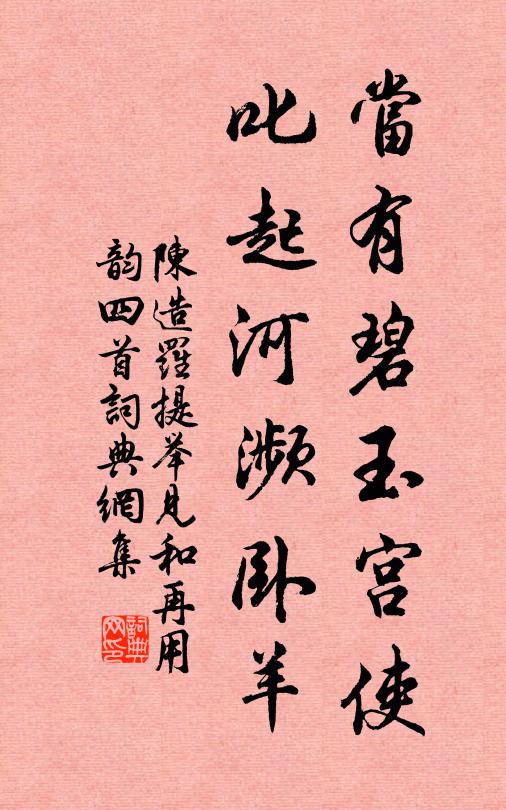 當有碧玉宮使
叱起河瀕卧羊
陳造羅提举見和再用
韵四首詞典網集
詞典
网印